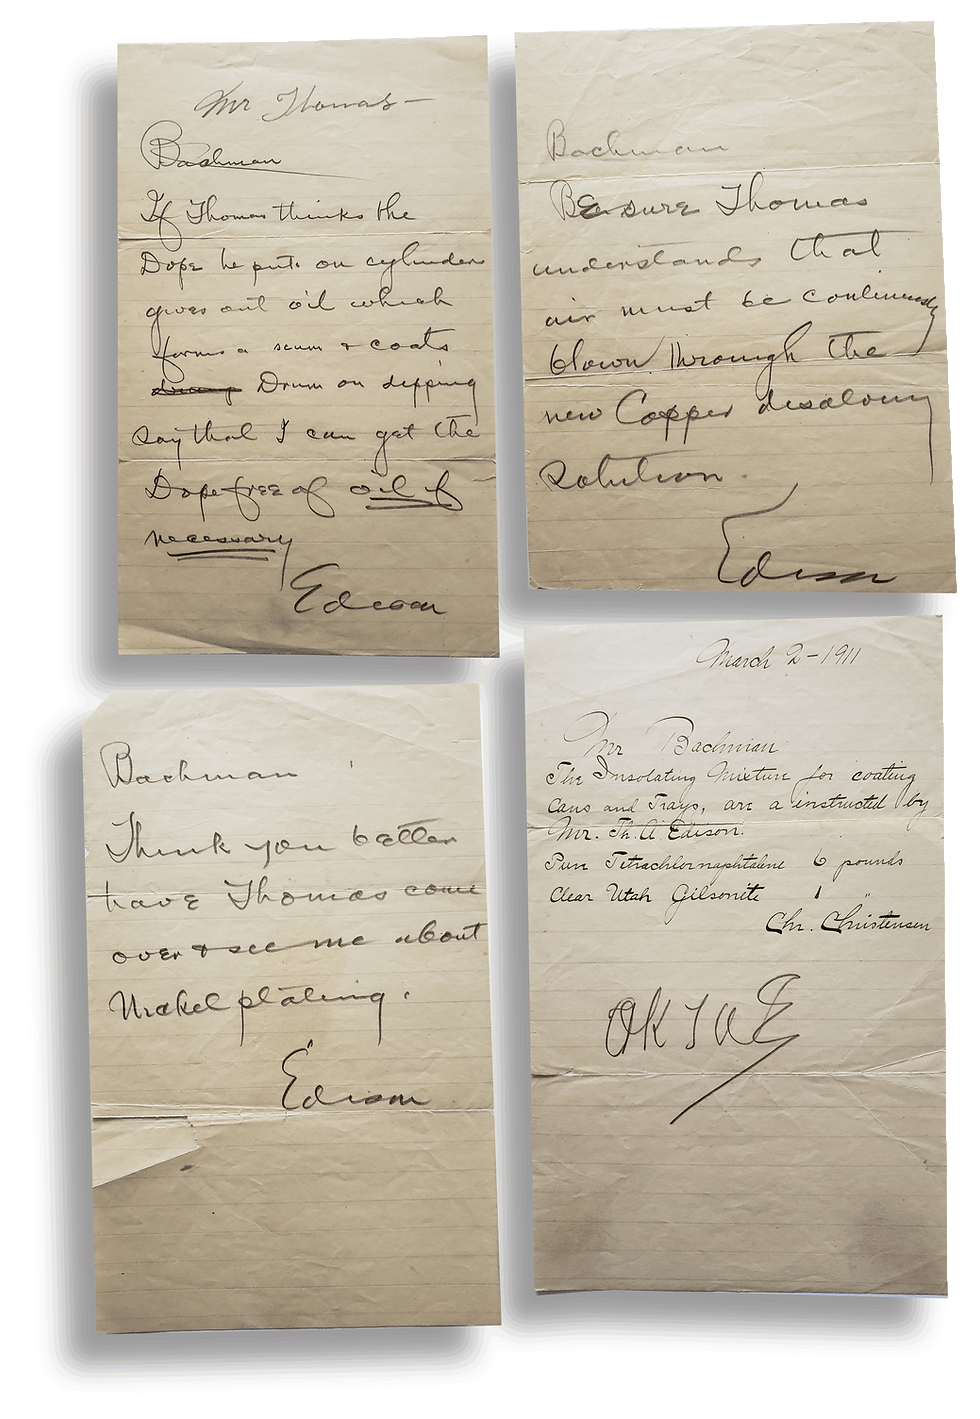 Mr Thomas —
Bachman
If Thomas thinks the
Dope he puts on cylinder
gives out oil which
forms a scum & coats
Drum on dipping
say that I can get the
Dope free of oil if
necessary
Edison
Bachman
BE sure Thomas
understands that
air must be continuously
blown through the
new Copper disolving
solution.
Edison
Bachman
Think you better
have Thomas come
over & see me about
Nickel plating.
Edison
March 2-1911
Mr Bachman
The Insolating Mixture for coating
Cans and Trays, are a instructed by
Mr. Th. A Edison.
Pure Tetrachlornaphtalene 6 pounds
Clear Utah Gilsonite 1 "
Chr. Christensen
OK TAE